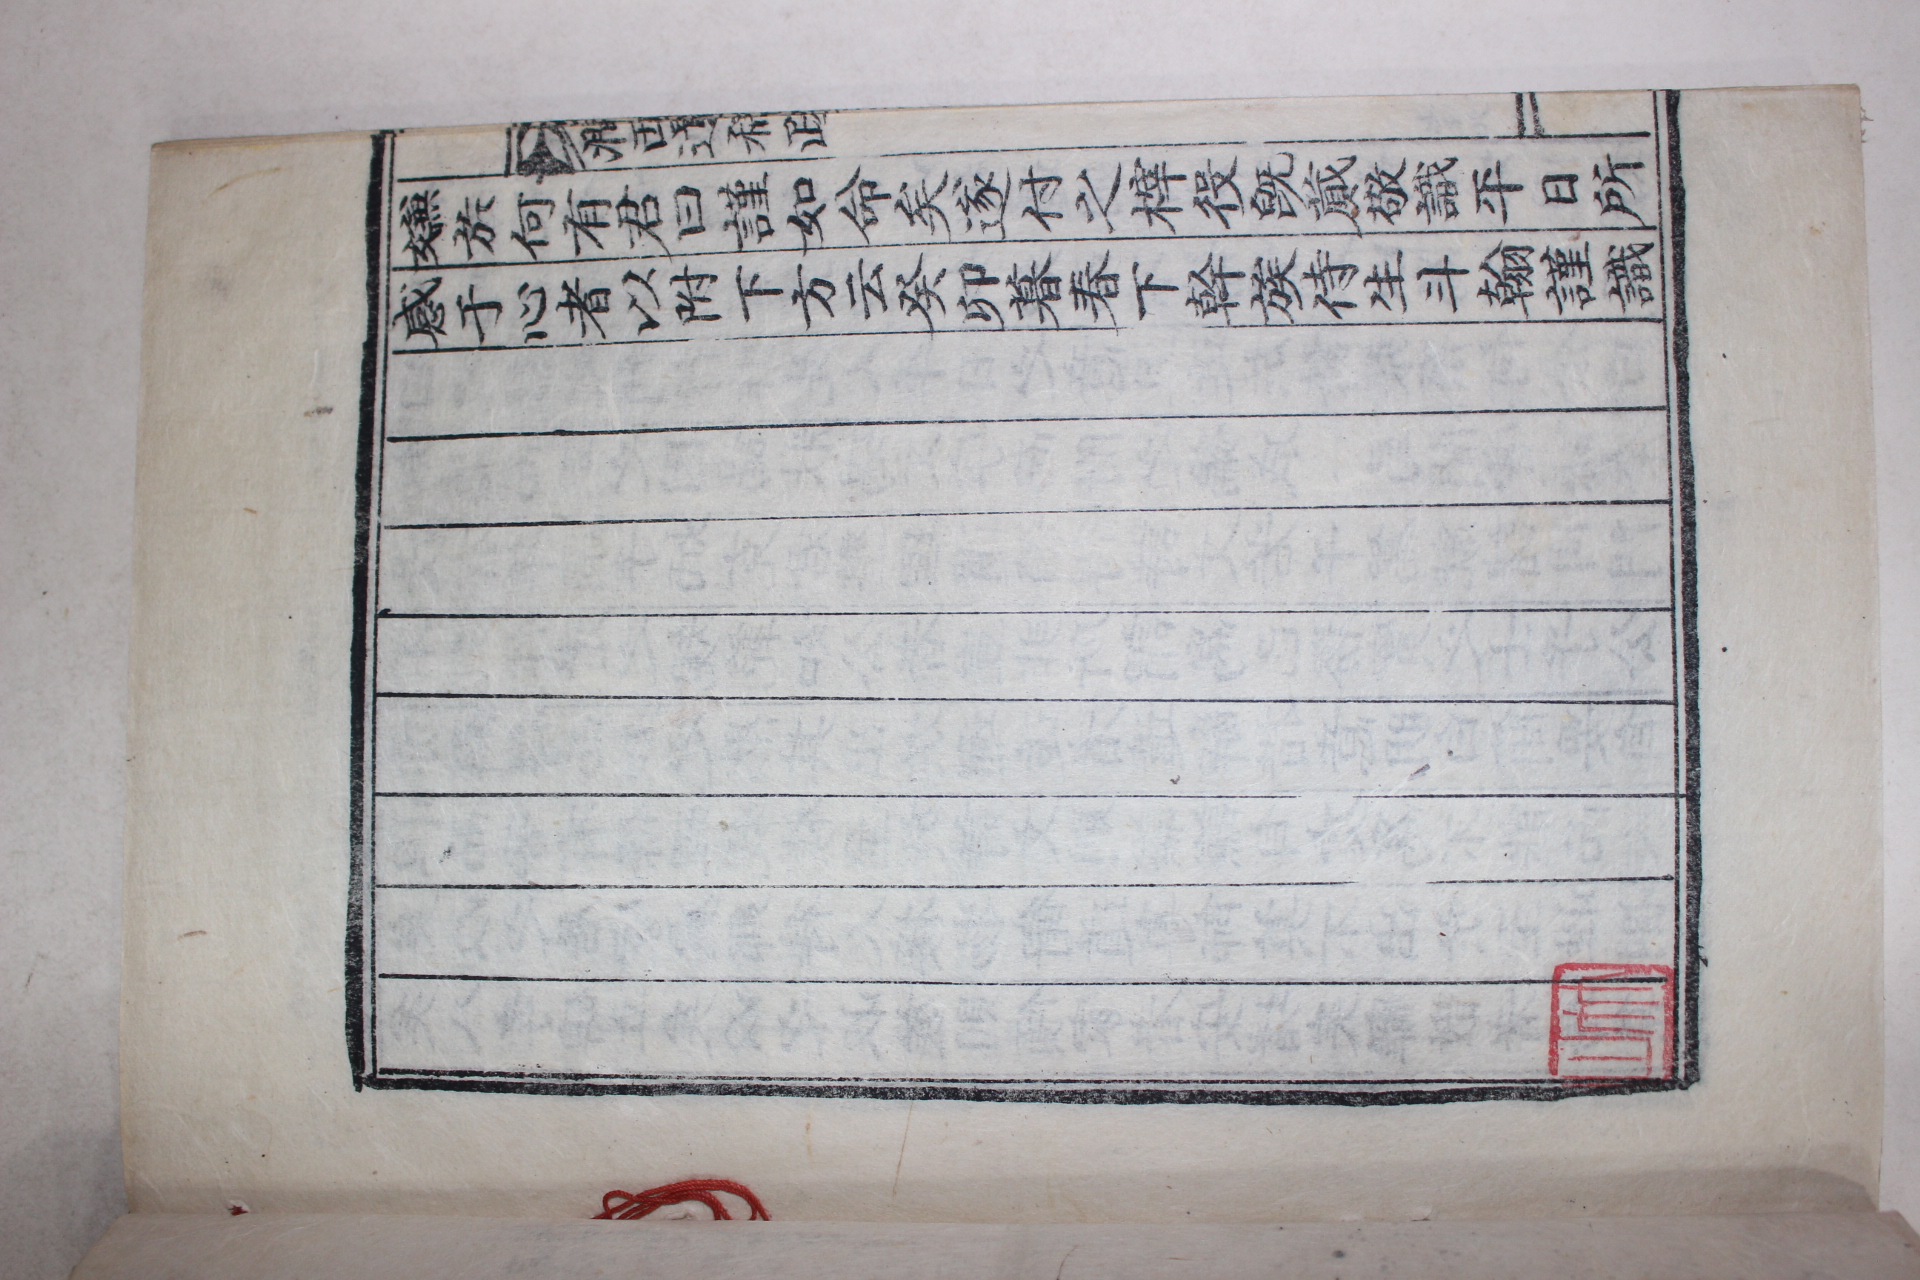 嫌於何有君曰謹如命矣遂付之梓役旣蕆敬識平日所
感于心者以附下方云癸卯暮春下幹族侍生斗翰謹識
西遺稿跋